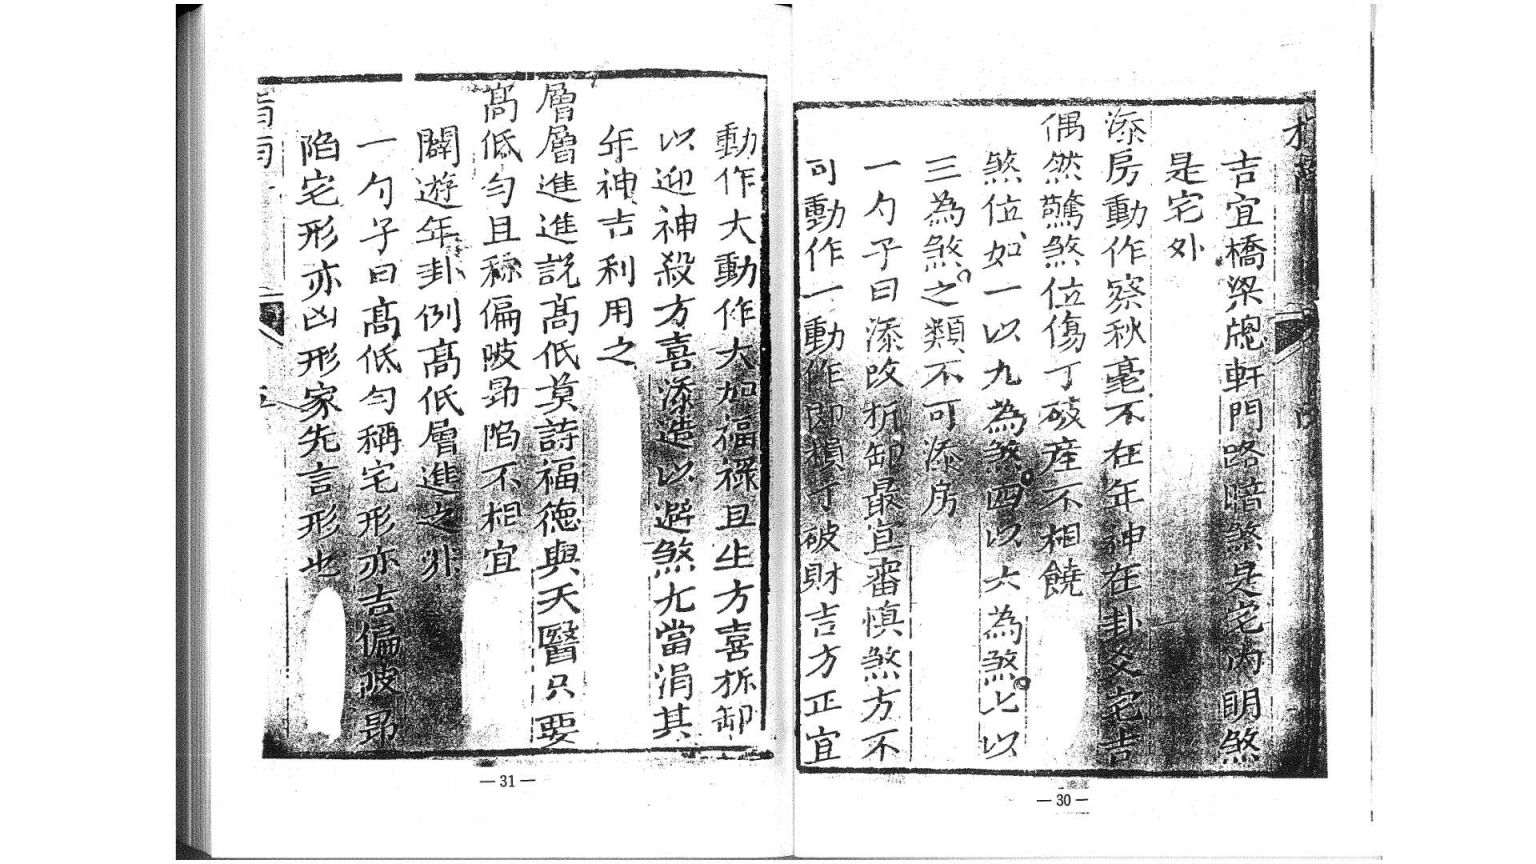 吉宜橋梁㥁軒門路暗煞是宅內明煞
是宅外
添房動作察秋毫不在年神在卦爻宅吉
偶然驚煞位傷丁破產不相饒
煞位如一以九為煞四以六為煞七以
三為煞之類不可添房
一勺子曰添改拆卸最宜審慎煞方不
可動作一動作即損丁破財吉方正宜
— 30 —
動作大動作大加福祿且生方喜拆卸
以迎神殺方喜添造以避煞尤當涓其
年神吉利用之
層層進進說高低莫詩福德與天醫只要
高低勻且稱偏陂昴陷不相宜
闢遊年卦例高低層進之非
一勺子曰高低勻稱宅形亦吉偏陂昴
陷宅形亦凶形家先言形也
— 31 —